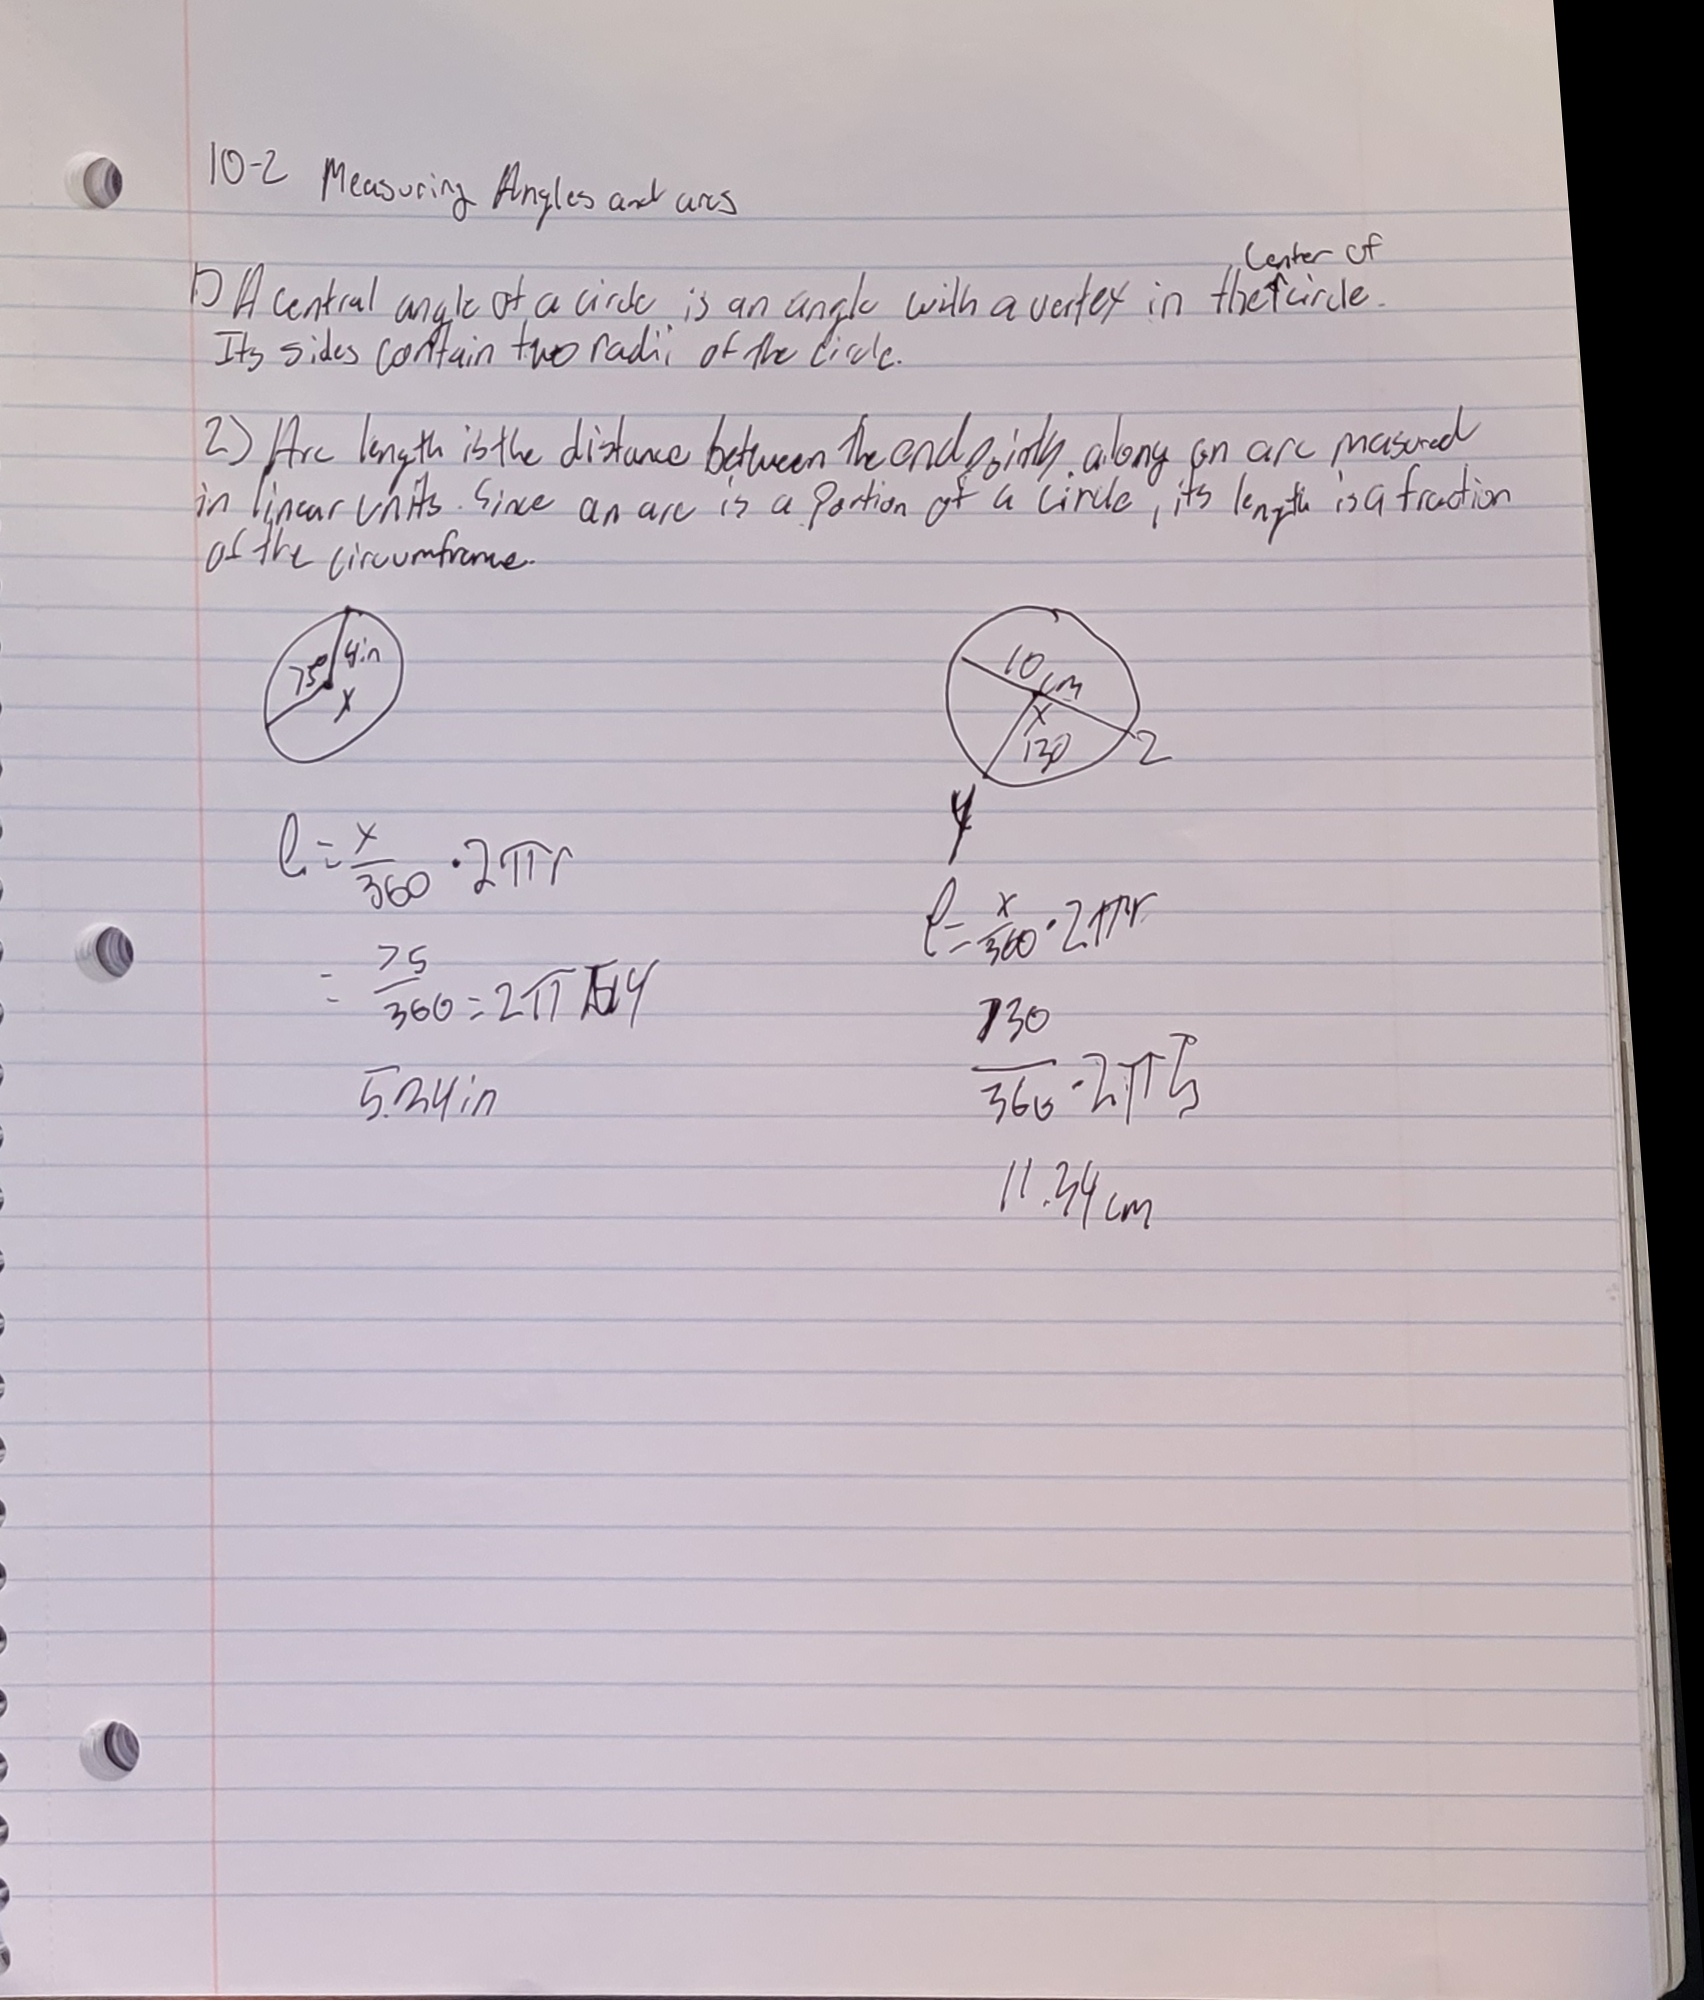 10-2 Measuring Angles and arcs
center of
1) A central angle of a circle is an angle with a vertex in the circle.
Its sides contain two radii of the circle.
2) Arc length is the distance between the endpoints along an arc measured
in linear units. Since an arc is a portion of a circle, its length is a fraction
of the circumfrance.
75° 4in
X
10 cm
X
130
Z
Y
l = x/360 · 2πr
= 75/360 = 2π 4
5.24in
l = x/360 · 2πr
130/360 · 2π5
11.34 cm